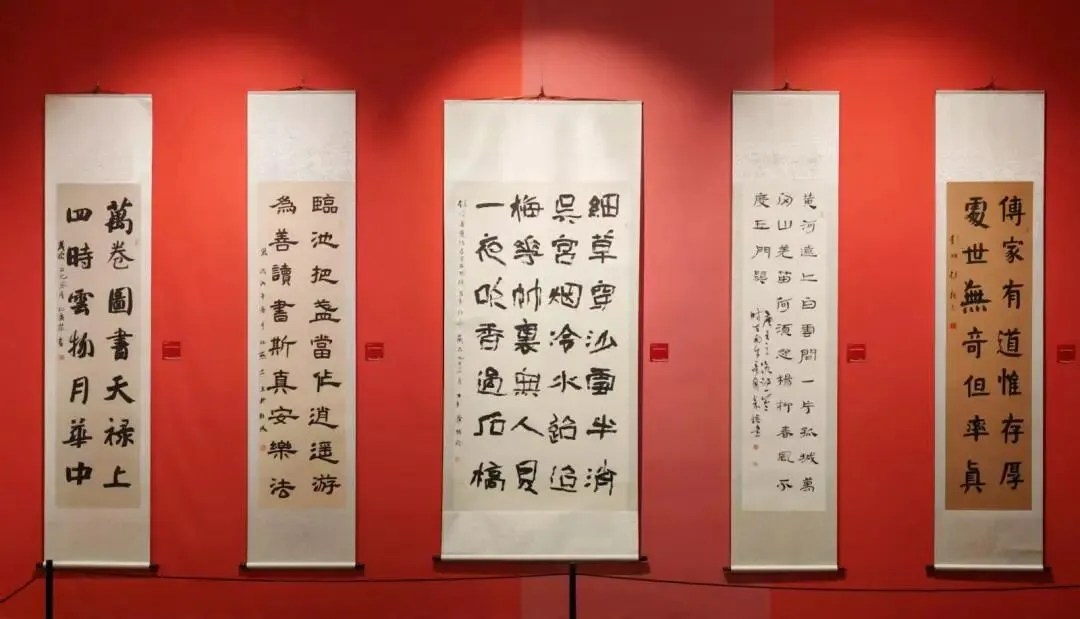 傳家有道惟存厚
處世無奇但率真
黃河遠上白雲間一片孤城萬
仞山羌笛何須怨楊柳春風不
度玉門關
細草穿沙雪半消
吳宮烟冷水迢迢
梅華竹裏無人見
一夜吹香過石橋
臨池把盞當作逍遥游
為善讀書斯真安樂法
萬卷圖書天禄上
四時雲物月華中